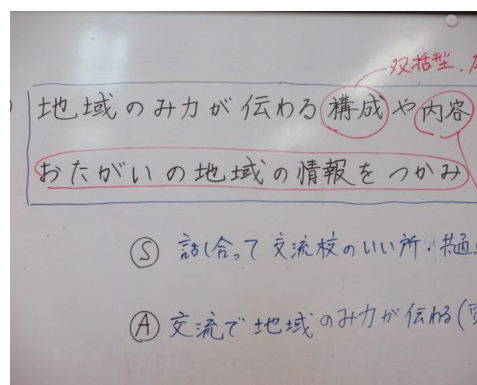 双括型.
地域のみ力が伝わる構成や内容
おたがいの地域の情報をつかみ
Ⓢ 話し合って交流校のいい所・共通
Ⓐ 交流で地域のみ力が伝わる(